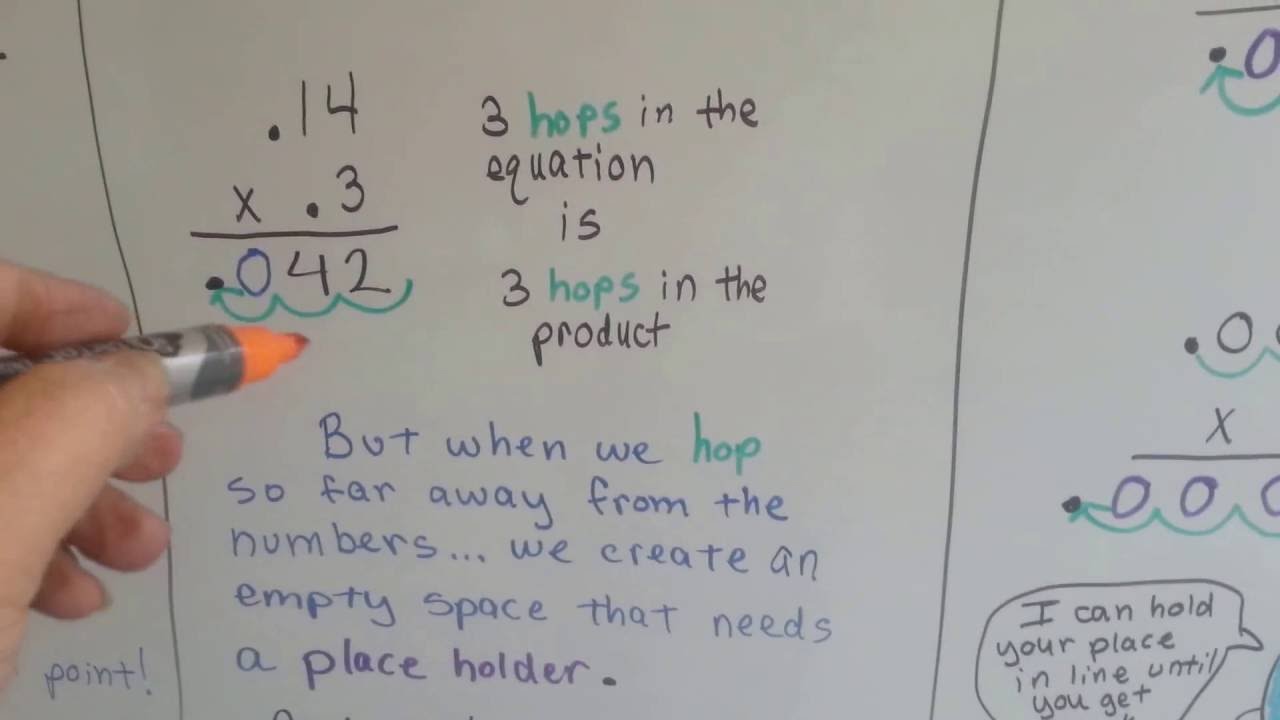 .14
x .3
.042
3 hops in the
equation
is
3 hops in the
product
But when we hop
so far away from the
numbers... we create an
empty space that needs
a place holder.
point!
.0
.0
x
.00
I can hold
your place
in line until
you get